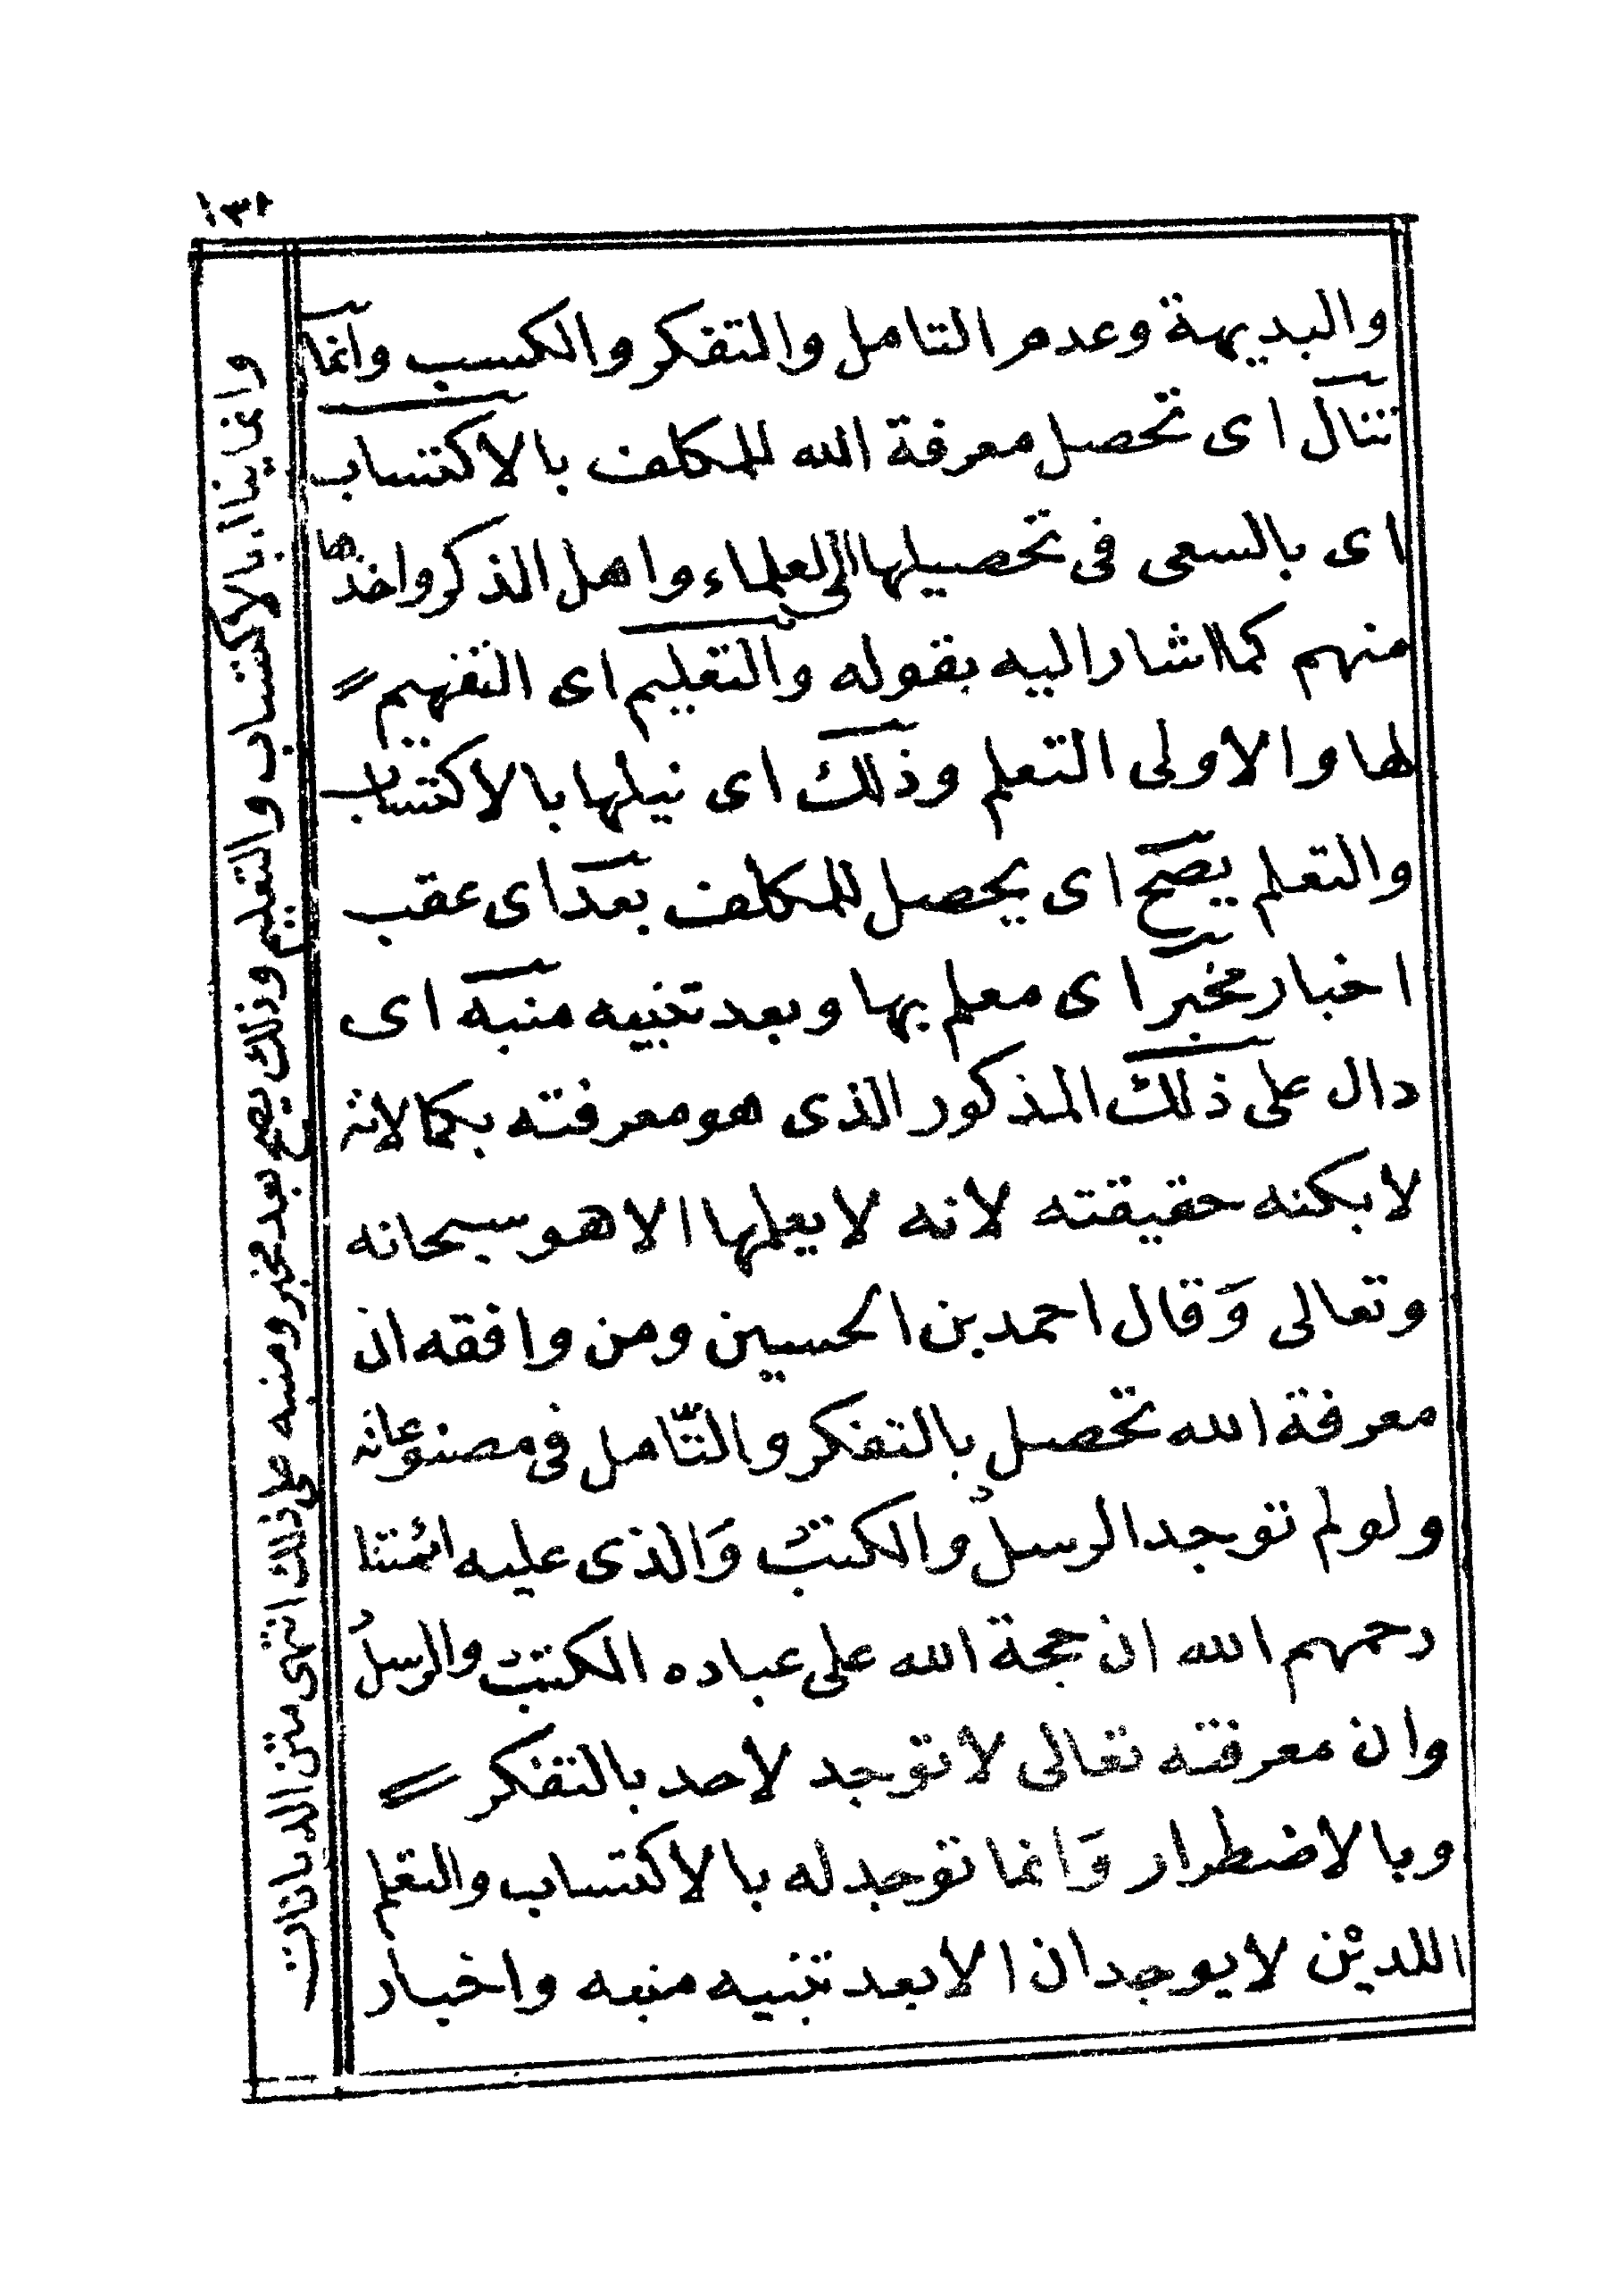 ١٣١
والبديهة وعدم التامل والتفكر والكسب وانما
تنال اى تحصل معرفة الله للمكلف بالاكتساب
اى بالسعى فى تحصيلها الى العلماء واهل الذكر واخذها
منهم كما اشار اليه بقوله والتعليم اى التفهيم
لها والاولى التعلم وذلك اى نيلها بالاكتساب
والتعلم يصح اى يحصل للمكلف بعد اى عقب
اخبار مخبر اى معلم بها وبعد تنبيه منبه اى
دال على ذلك المذكور الذى هو معرفته بكمالاته
لا بكنه حقيقته لانه لا يعلمها الا هو سبحانه
وتعالى وَقال احمد بن الحسين ومن وافقه ان
معرفة الله تحصل بالتفكر والتّامل فى مصنوعاته
ولو لم توجد الرسلُ والكتبُ وَالذى عليه ائمتنا
رحمهم الله ان حجة الله على عباده الكتبُ والرسلُ
وان معرفته تعالى لا توجد لاحد بالتفكر
وبالاضطرار وَانما توجد له بالاكتساب والتعلم
اللديْن لا يوجدان الا بعد تنبيه منبه واخبار
وانما ينال بالاكتساب والتعليم وذلك يصح بعد مخبر ومنبه على ذلك انتهى متن الديانات